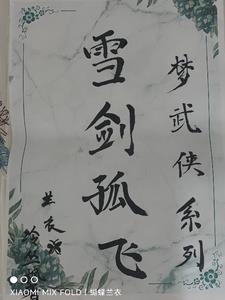 梦武侠系列
雪剑孤飞
兰衣
XIAOMI MIX FOLD | 蝴蝶兰衣